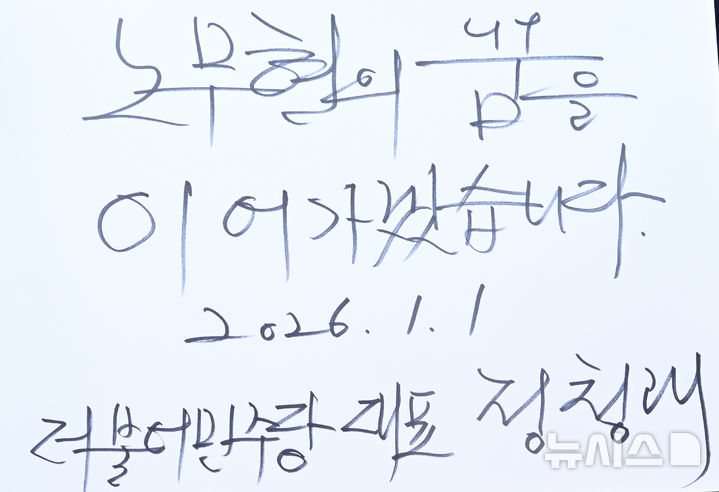 노무현의 꿈을
이어가겠습니다.
2026.1.1
더불어민주당 대표 정청래
뉴시스